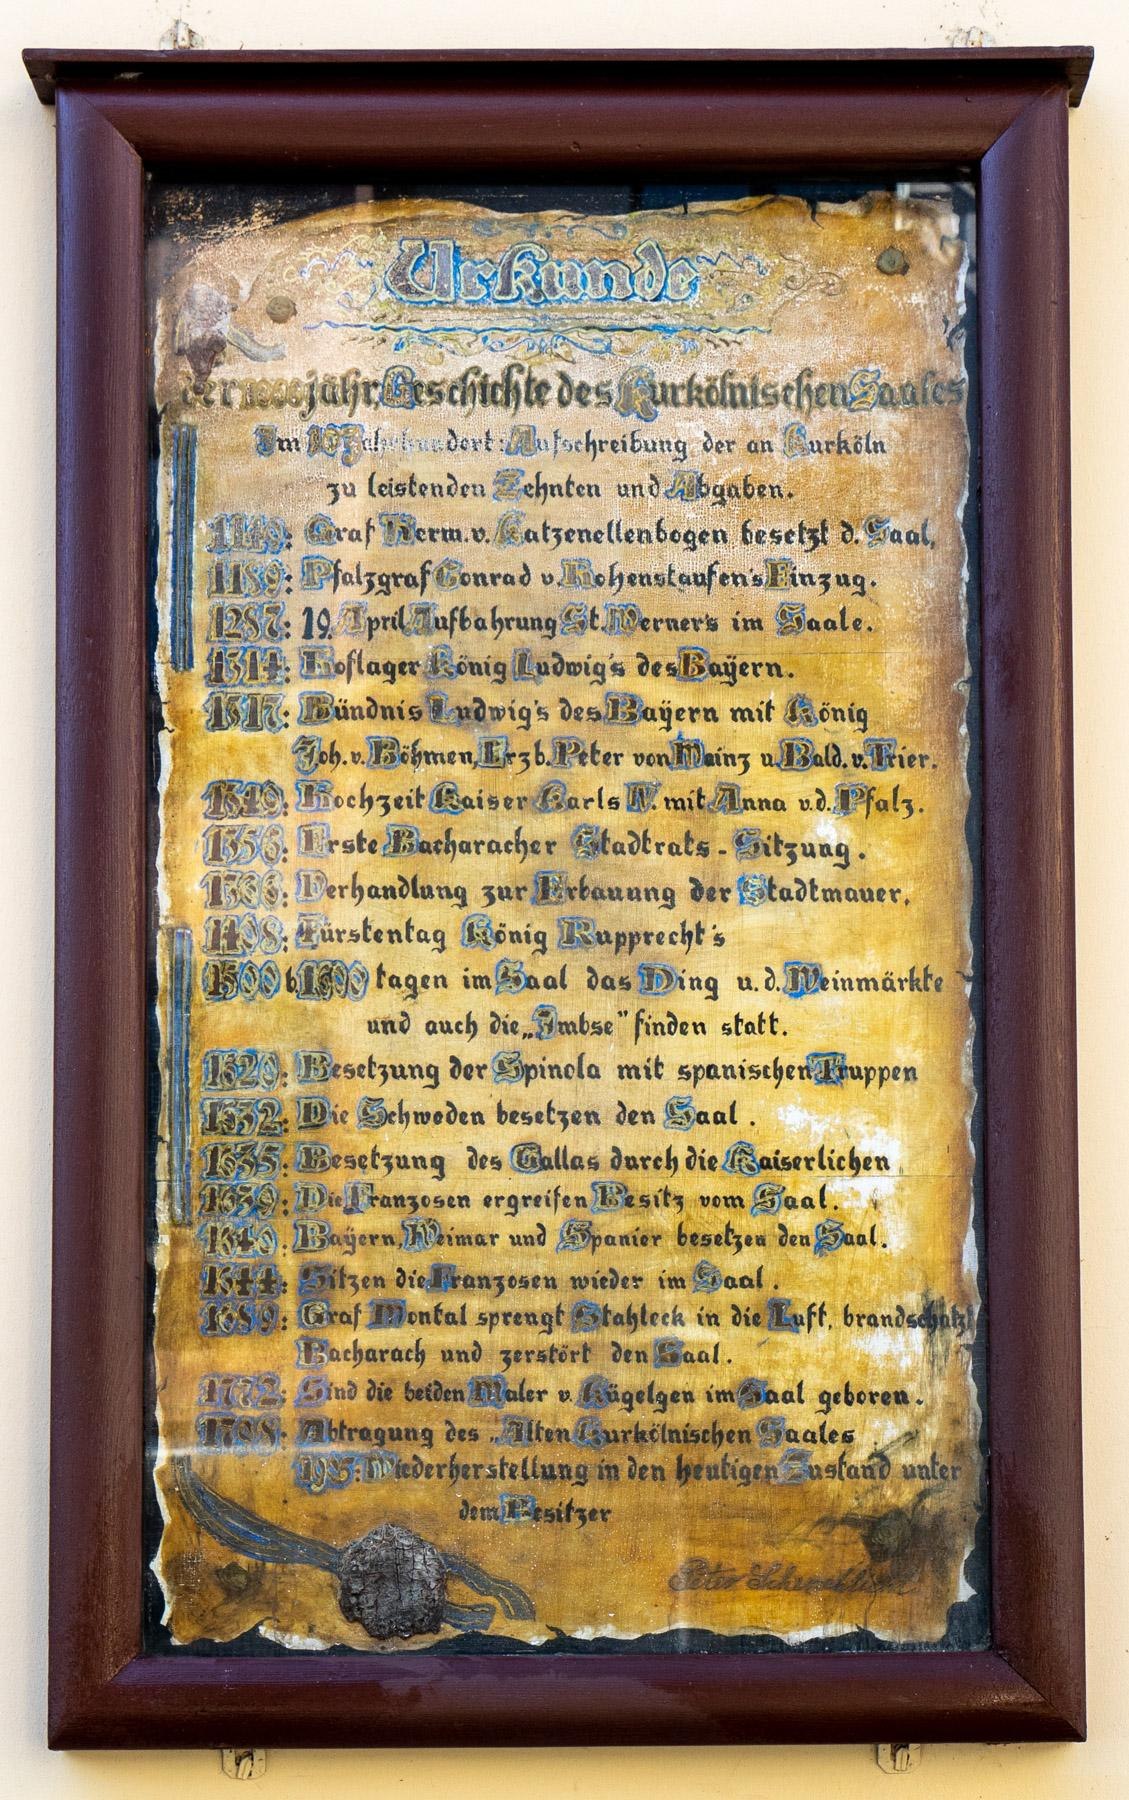 Urkunde
der 1000 jähr. Geschichte des Kurkölnischen Saales
Im 10. Jahrhundert: Aufschreibung der an Kurköln
zu leistenden Zehnten und Abgaben.
1149: Graf Herm. v. Katzenellenbogen besetzt d. Saal,
1189: Pfalzgraf Conrad v. Hohenstaufen's Einzug.
1287: 19. April Aufbahrung St. Werner's im Saale.
1314: Hoflager König Ludwig's des Bayern.
1317: Bündnis Ludwig's des Bayern mit König
Joh. v. Böhmen, Erzb. Peter von Mainz u. Bald. v. Trier.
1349: Hochzeit Kaiser Karls IV. mit Anna v.d. Pfalz.
1356: Erste Bacharacher Stadtrats-Sitzung.
1366: Verhandlung zur Erbauung der Stadtmauer,
1408: Fürstentag König Rupprecht's
1500 b. 1600 tagen im Saal das Ding u. d. Weinmärkte
und auch die „Imbse" finden statt.
1620: Besetzung der Spinola mit spanischen Truppen
1632: Die Schweden besetzen den Saal.
1635: Besetzung des Gallas durch die Kaiserlichen
1639: Die Franzosen ergreifen Besitz vom Saal.
1640: Bayern, Weimar und Spanier besetzen den Saal.
1644: Sitzen die Franzosen wieder im Saal.
1689: Graf Montal sprengt Stahleck in die Luft, brandschatzt
Bacharach und zerstört den Saal.
1772: Sind die beiden Maler v. Kügelgen im Saal geboren.
Abtragung des „Alten Kurkölnischen Saales
Wiederherstellung in den heutigen Zustand unter
dem Besitzer
Peter